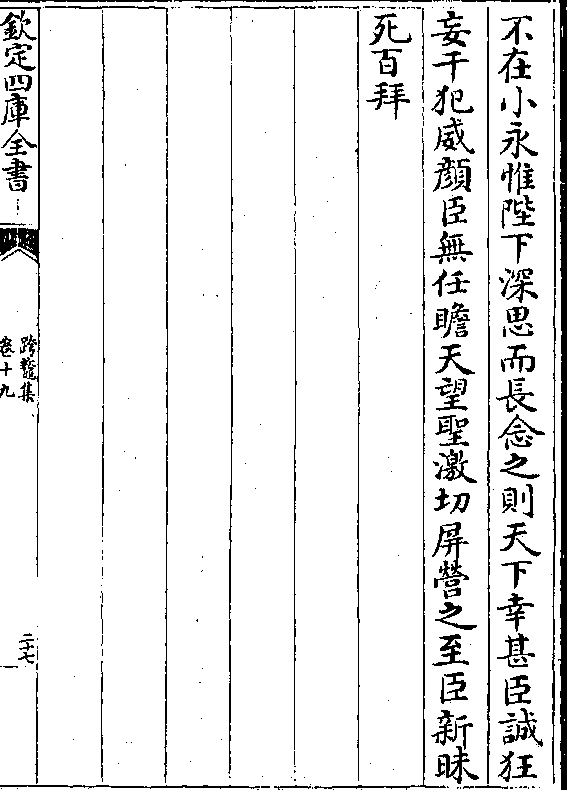 不在小永惟陛下深思而長念之則天下幸甚臣誠狂
妄干犯威顔臣無任瞻天望聖激切屏營之至臣新昧
死百拜
欽定四庫全書
跨鼇集
卷十九
二十七